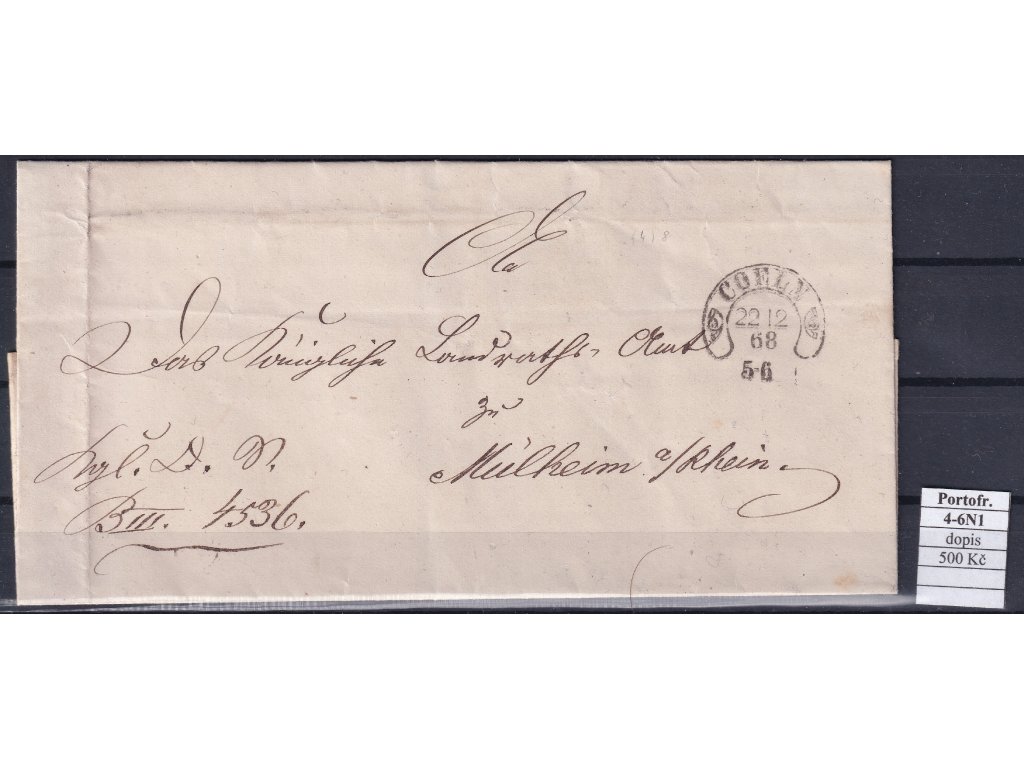 An
Das Königliche Landraths-Amt
zu
Mülheim a/Rhein.
Kgl. D. S.
B III. 4536.
COELN
22 12
68
5-6
Portofr.
4-6N1
dopis
500 Kč